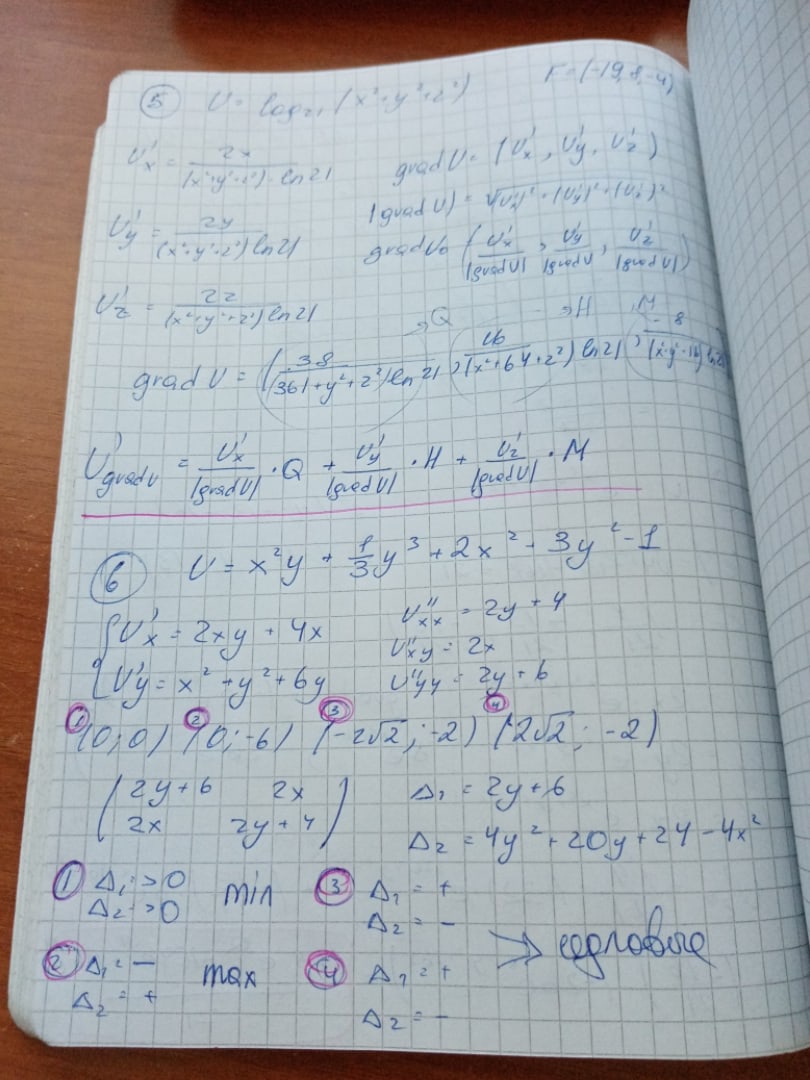 5 U = log₂₁ (x²+y²+z²) F = (-19, 8, -4)
U'x = 2x / (x²+y²+z²) · ln21 grad U = (U'x, U'y, U'z)
|grad U| = √(U'x)² + (U'y)² + (U'z)²
U'y = 2y / (x²+y²+z²) ln21 grad U₀ (U'x / |grad U|, U'y / |grad U|, U'z / |grad U|)
U'z = 2z / (x²+y²+z²) ln21
→Q →H M
grad U = ( 38 / (361+y²+z²) ln21, 16 / (x²+64+z²) ln21, -8 / (x²+y²+16) ln21
U'gradU = U'x / |grad U| · Q + U'y / |grad U| · H + U'z / |grad U| · M
6 U = x²y + 1/3 y³ + 2x² + 3y² - 1
{ U'x = 2xy + 4x U''xx = 2y + 4
U''xy = 2x
U'y = x² + y² + 6y U''yy = 2y + 6
1 2 3 4
(0; 0) (0; -6) (-2√2; -2) (2√2; -2)
( 2y+6 2x Δ₁ = 2y + 6
2x 2y+4 ) Δ₂ = 4y² + 20y + 24 - 4x²
1 Δ₁ => 0 min 3 Δ₁ = +
Δ₂ => 0 Δ₂ = -
→ седловые
2 Δ₁ = - max 4 Δ₁ = +
Δ₂ = + Δ₂ = -